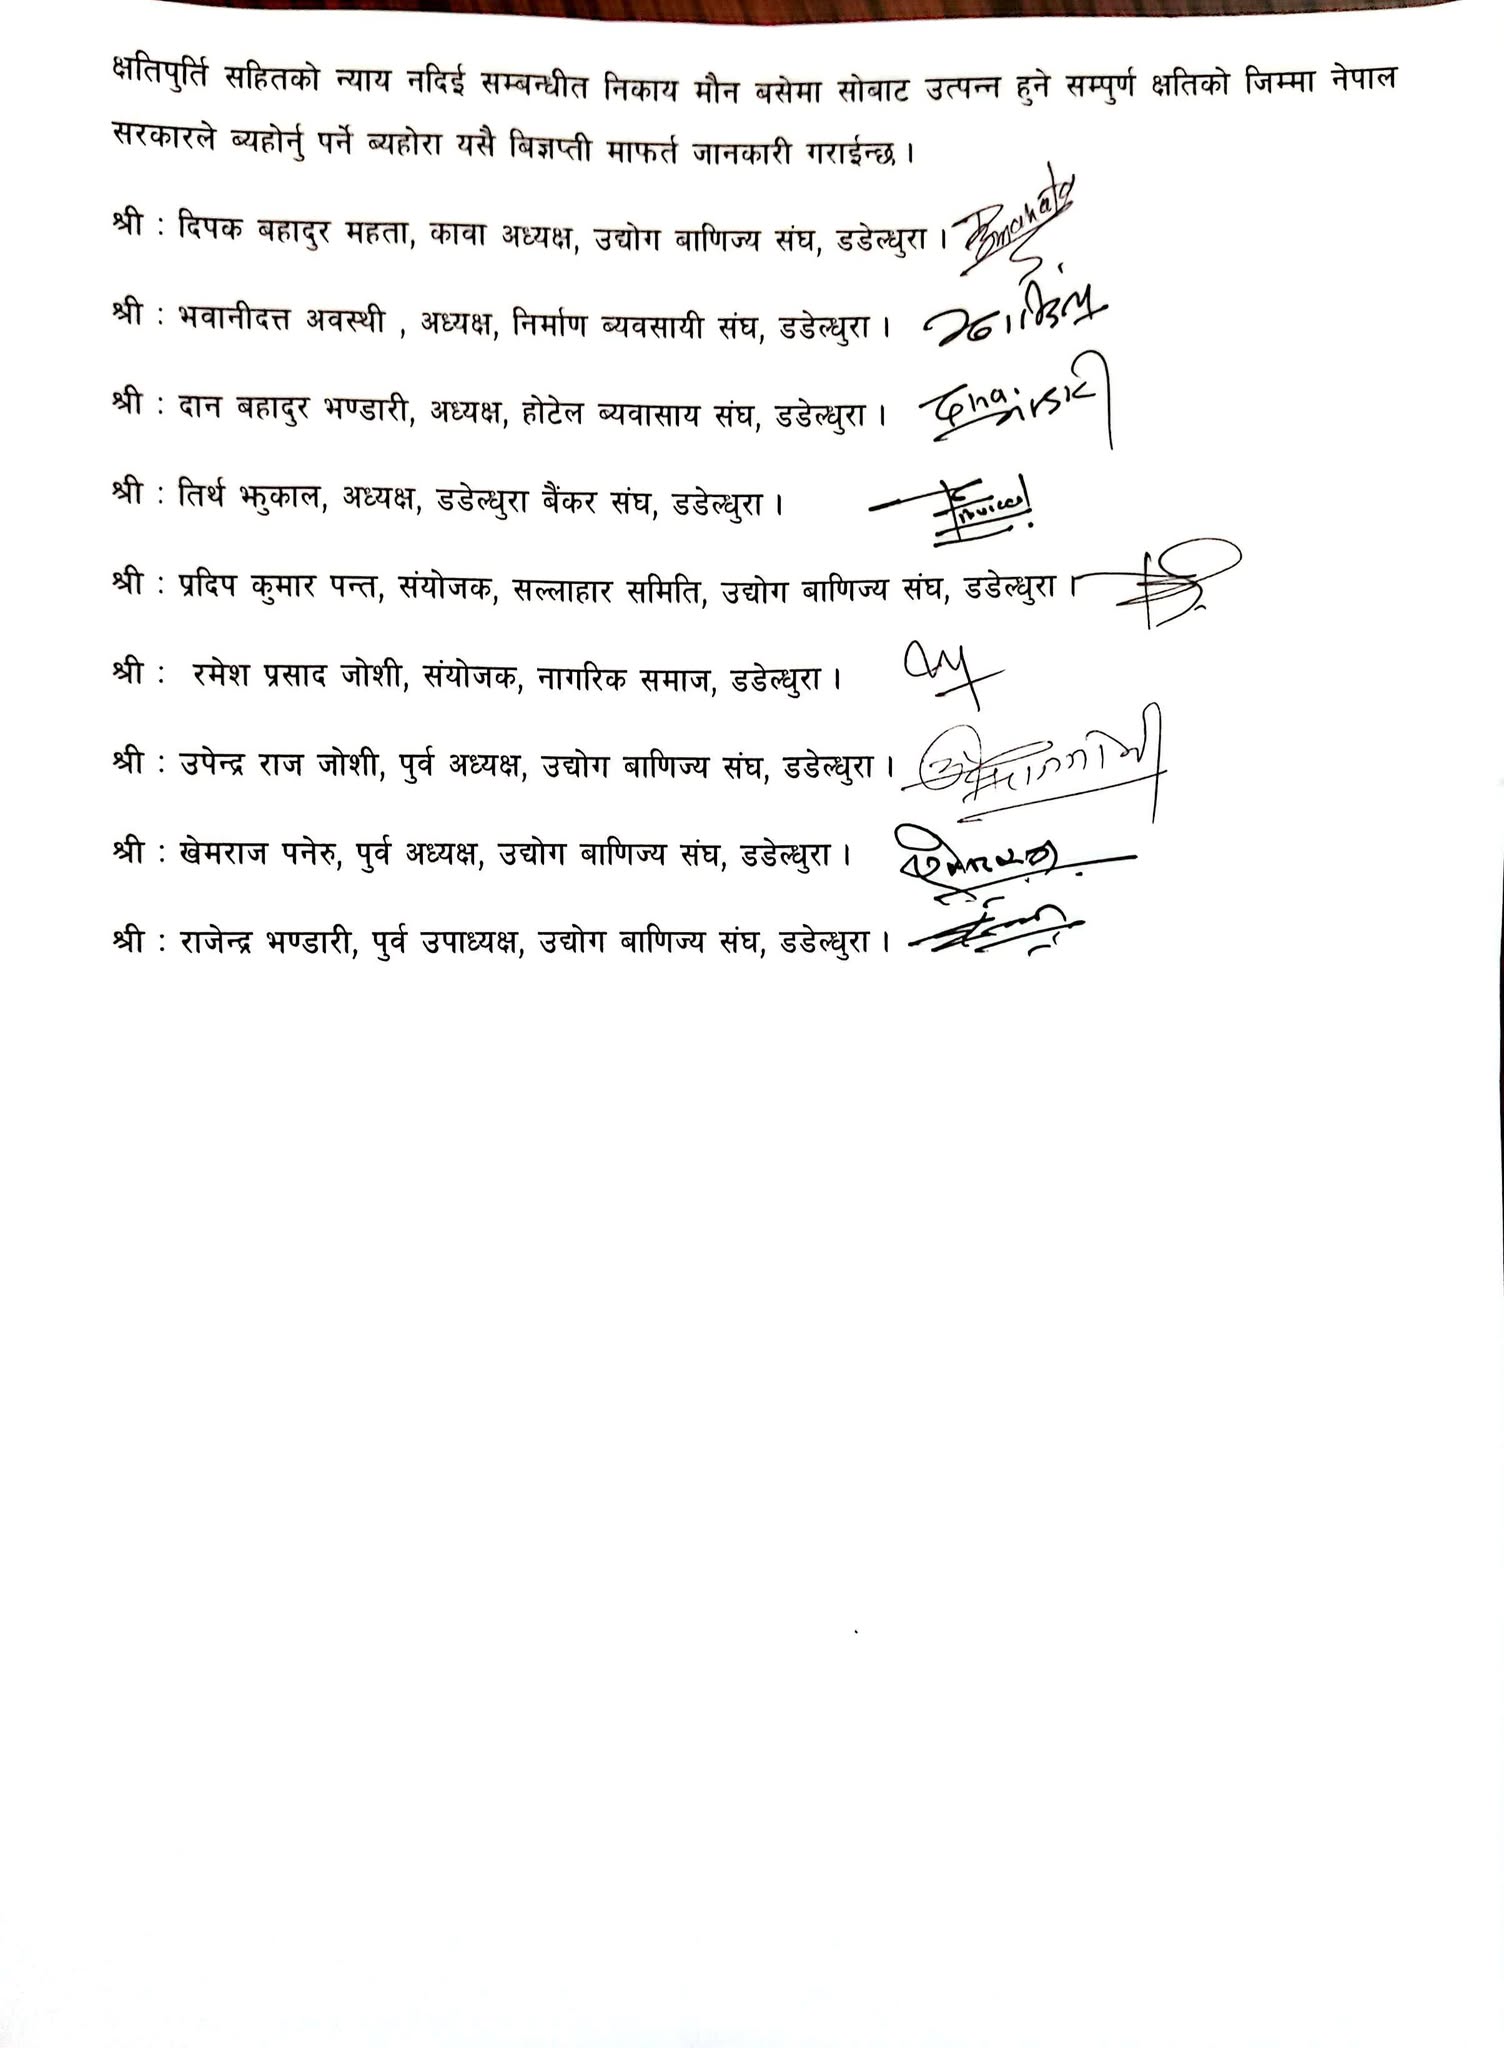 क्षतिपुर्ति सहितको न्याय नदिई सम्बन्धीत निकाय मौन बसेमा सोबाट उत्पन्न हुने सम्पुर्ण क्षतिको जिम्मा नेपाल
सरकारले ब्यहोर्नु पर्ने ब्यहोरा यसै बिज्ञप्ती मार्फत जानकारी गराईन्छ ।
श्री : दिपक बहादुर महता, कावा अध्यक्ष, उद्योग बाणिज्य संघ, डडेल्धुरा ।
श्री : भवानीदत्त अवस्थी , अध्यक्ष, निर्माण ब्यवसायी संघ, डडेल्धुरा ।
श्री : दान बहादुर भण्डारी, अध्यक्ष, होटेल ब्यवासाय संघ, डडेल्धुरा ।
श्री : तिर्थ झुकाल, अध्यक्ष, डडेल्धुरा बैंकर संघ, डडेल्धुरा ।
श्री : प्रदिप कुमार पन्त, संयोजक, सल्लाहार समिति, उद्योग बाणिज्य संघ, डडेल्धुरा ।
श्री : रमेश प्रसाद जोशी, संयोजक, नागरिक समाज, डडेल्धुरा ।
श्री : उपेन्द्र राज जोशी, पुर्व अध्यक्ष, उद्योग बाणिज्य संघ, डडेल्धुरा ।
श्री : खेमराज पनेरु, पुर्व अध्यक्ष, उद्योग बाणिज्य संघ, डडेल्धुरा ।
श्री : राजेन्द्र भण्डारी, पुर्व उपाध्यक्ष, उद्योग बाणिज्य संघ, डडेल्धुरा ।